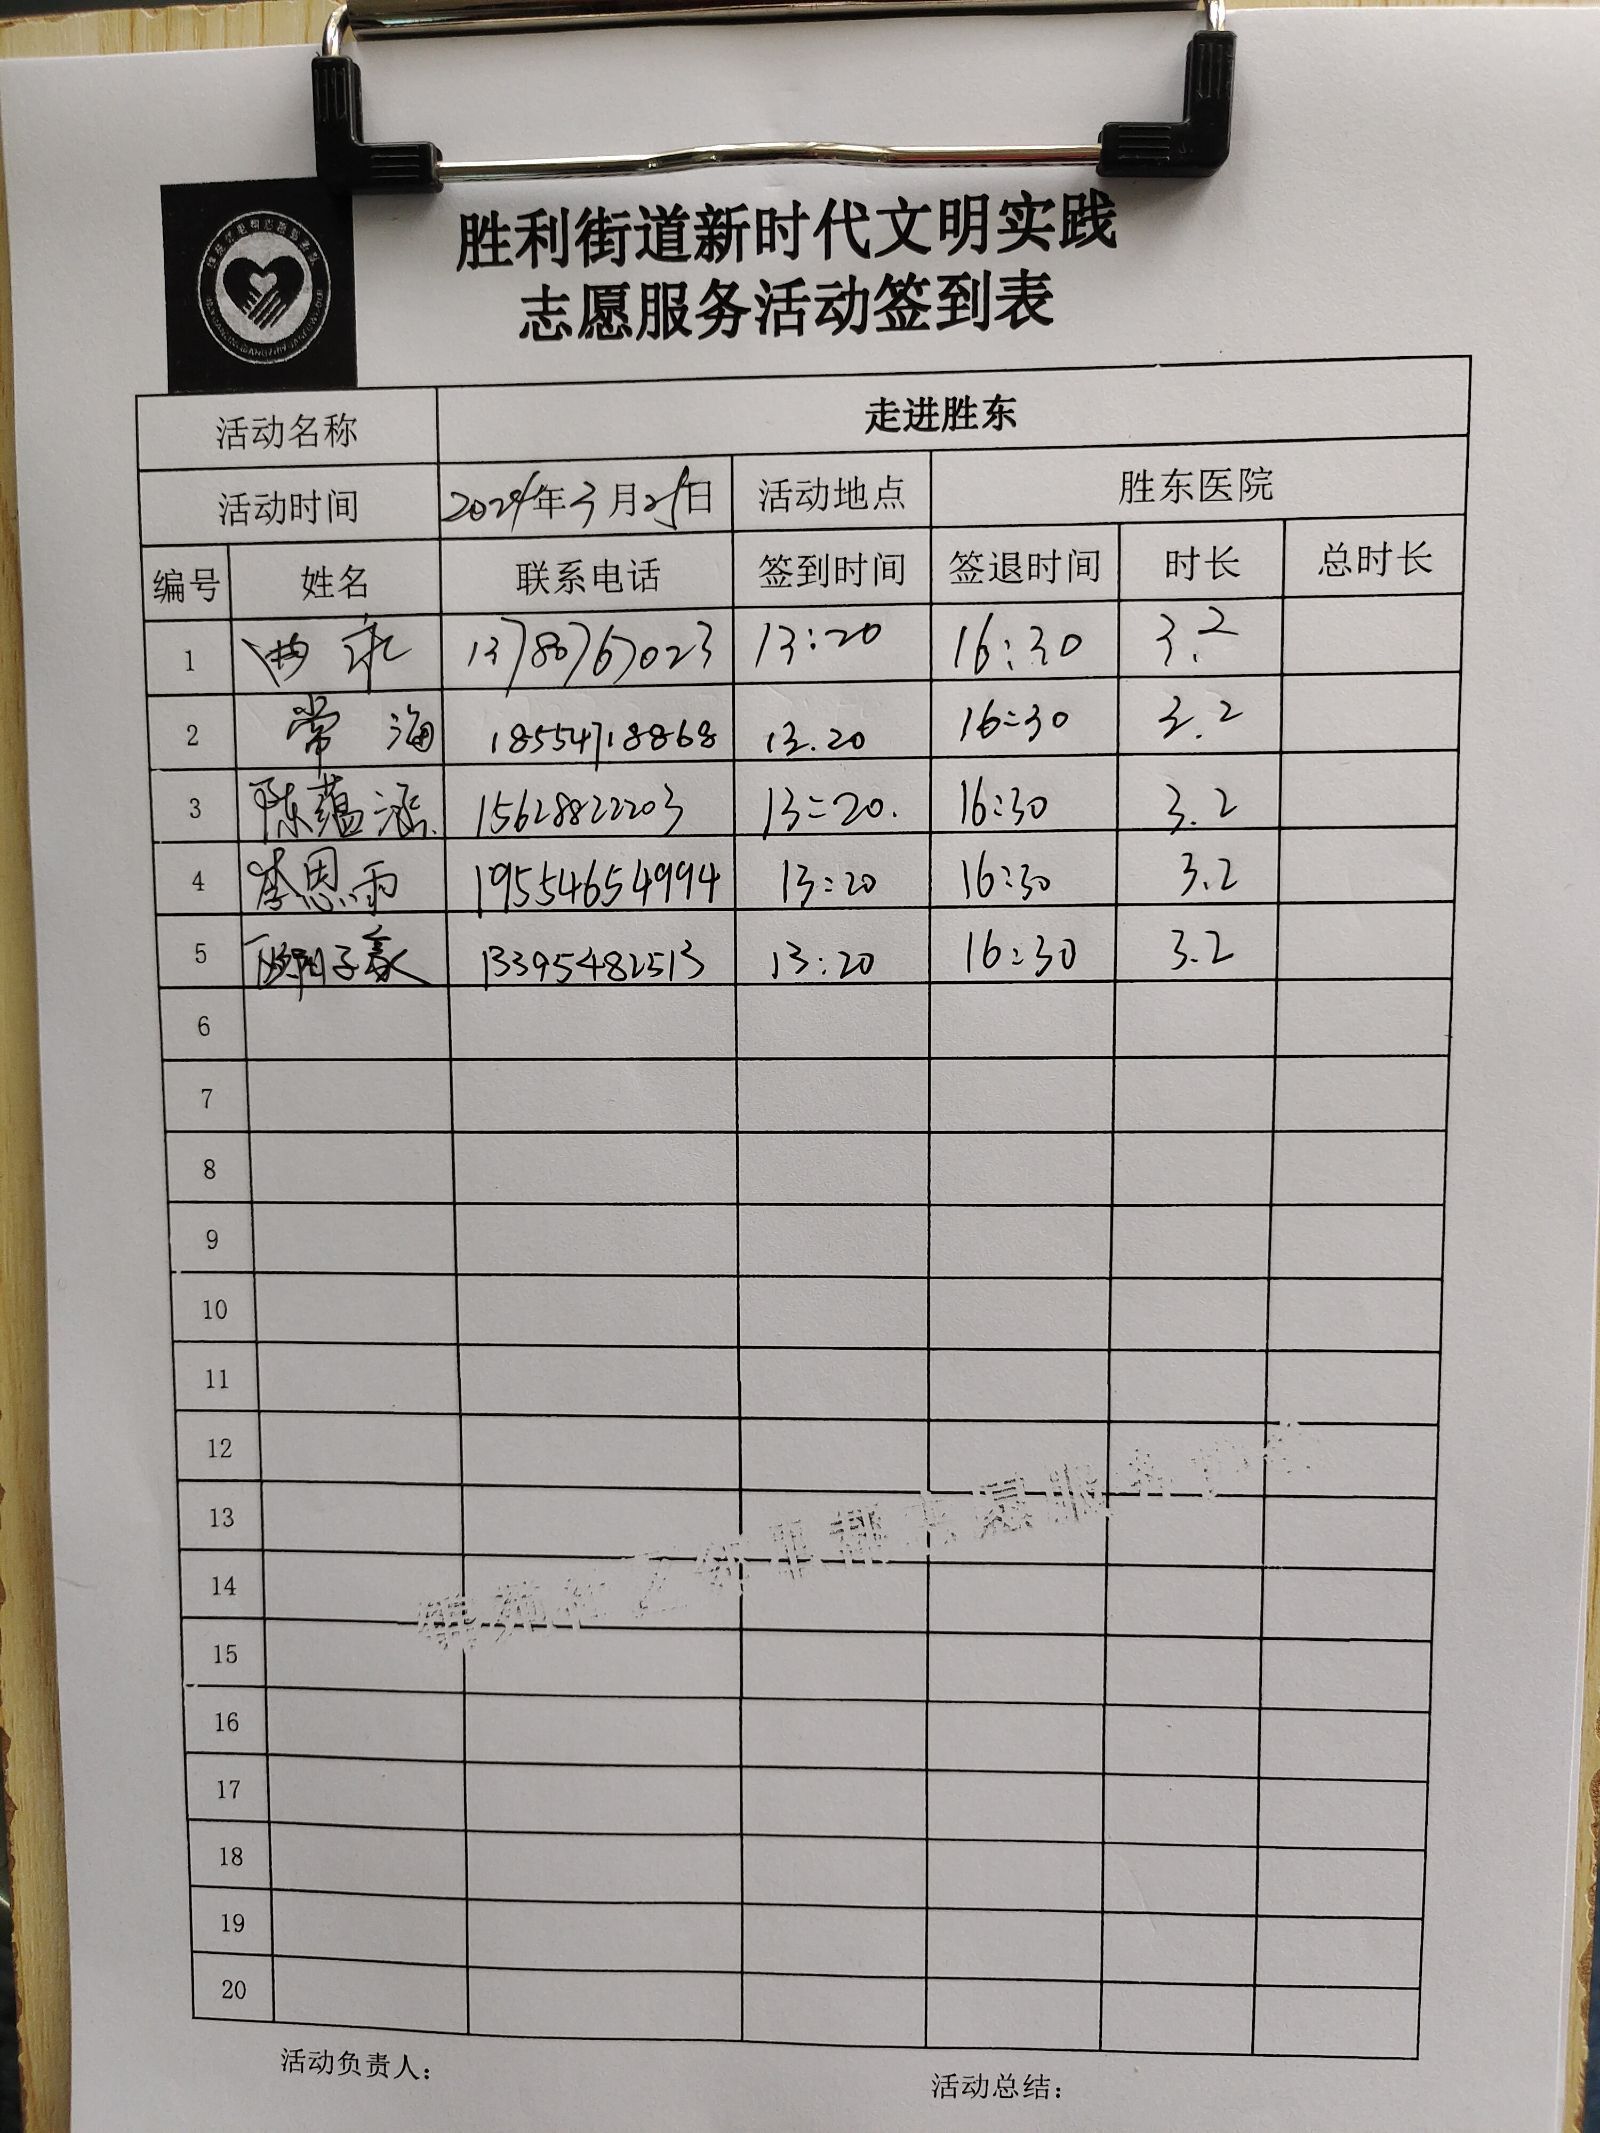 胜利街道新时代文明实践
志愿服务活动签到表
活动名称 走进胜东
活动时间 2024年3月25日 活动地点 胜东医院
编号 姓名 联系电话 签到时间 签退时间 时长 总时长
1 13780767023 13:20 16:30 3.2
2 常海 18554718868 13.20 16:30 3.2
3 陈蕴涵 15628822203 13:20. 16:30 3.2
4 李恩雨 19554654994 13:20 16:30 3.2
5 欧阳子豪 13395482513 13:20 16:30 3.2
6
7
8
9
10
11
12
13
14
15
16
17
18
19
20
活动负责人：
活动总结：